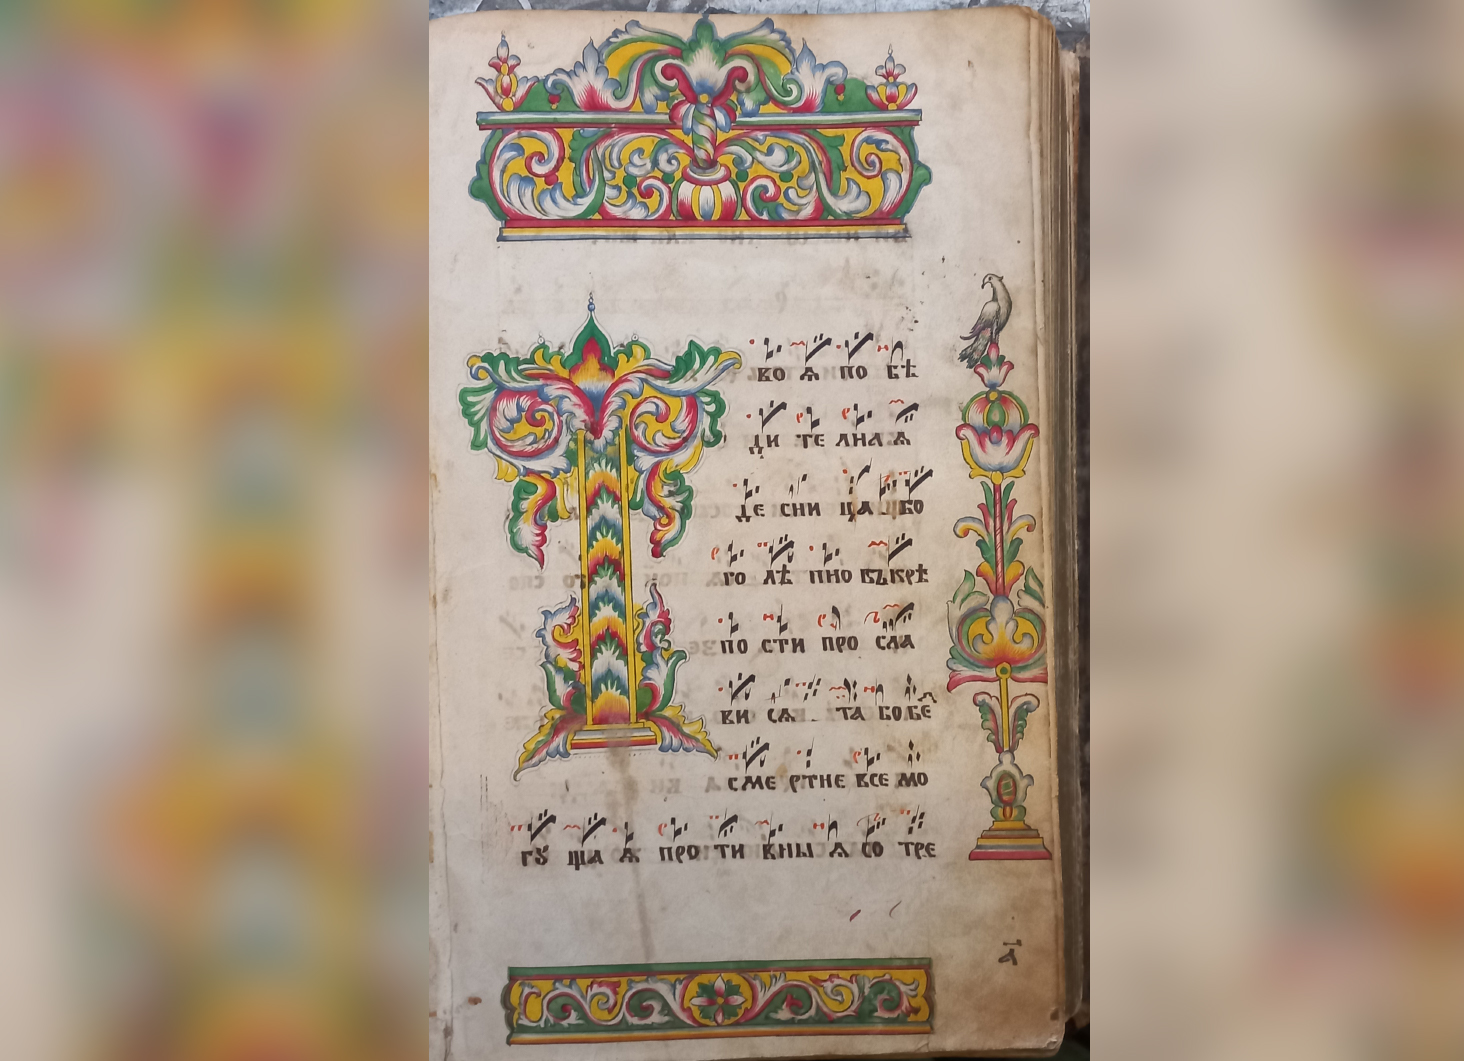 Т
воѧ по бѣ
ди те лнаѧ
де сни ца бо
го лѣ пно въ крѣ
по сти про сла
ви сѧ та бо бе
сме ртне все мо
гꙋ щаѧ про ти вны ѧ со тре